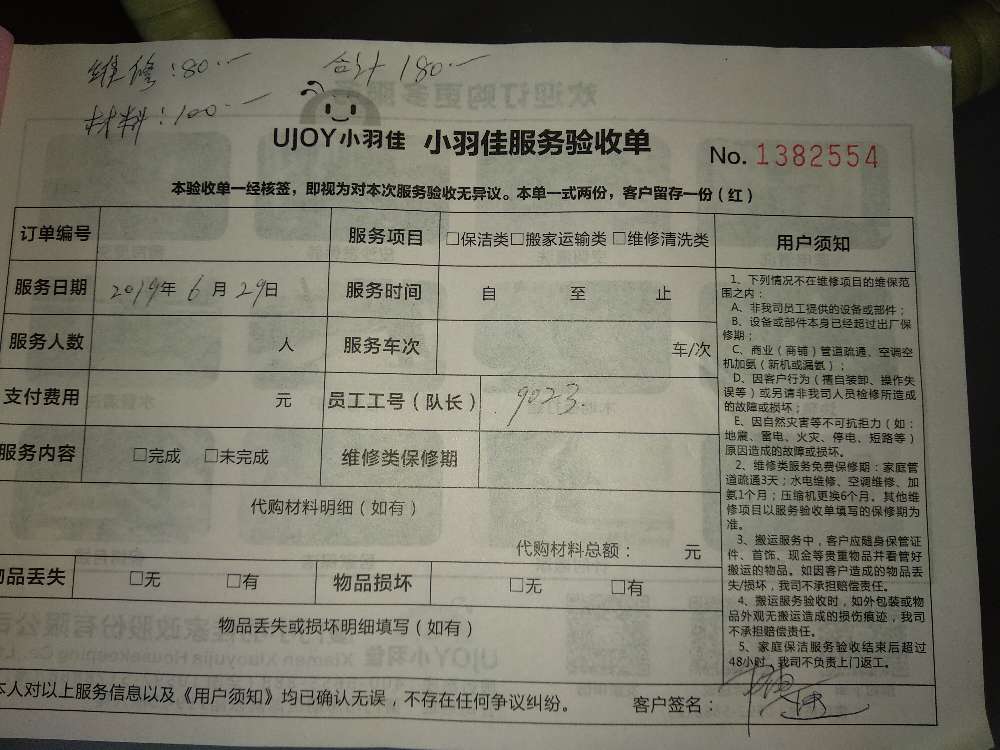 维修:80.—
合计180.—
材料:100.—
UJOY小羽佳 小羽佳服务验收单
No. 1382554
本验收单一经核签，即视为对本次服务验收无异议。本单一式两份，客户留存一份（红）
订单编号 服务项目 □保洁类□搬家运输类□维修清洗类
服务日期 2019年6月29日 服务时间 自 至 止
服务人数 人 服务车次 车/次
支付费用 元 员工工号（队长） 9023
服务内容 □完成 □未完成 维修类保修期
代购材料明细（如有）
代购材料总额： 元
物品丢失 □无 □有 物品损坏 □无 □有
物品丢失或损坏明细填写（如有）
用户须知
1、下列情况不在维修项目的维保范
围之内：
A、非我司员工提供的设备或部件；
B、设备或部件本身已经超过出厂保
修期；
C、商业（商铺）管道疏通、空调空
机加氨（新机或漏氨）；
D、因客户行为（擅自装卸、操作失
误等）或另请非我司人员检修所造成
的故障或损坏；
E、因自然灾害等不可抗拒力（如：
地震、雷电、火灾、停电、短路等）
原因造成的故障或损坏。
2、维修类服务免费保修期：家庭管
道疏通3天；水电维修、空调维修、加
氨1个月；压缩机更换6个月。其他维
修项目以服务验收单填写的保修期为
准。
3、搬运服务中，客户应随身保管证
件、首饰、现金等贵重物品并看管好
搬运的物品。如因客户造成的物品丢
失/损坏，我司不承担赔偿责任。
4、搬运服务验收时，如外包装或物
品外观无搬运造成的损伤痕迹，我司
不承担赔偿责任。
5、家庭保洁服务验收结束后超过
48小时，我司不负责上门返工。
本人对以上服务信息以及《用户须知》均已确认无误，不存在任何争议纠纷。 客户签名：